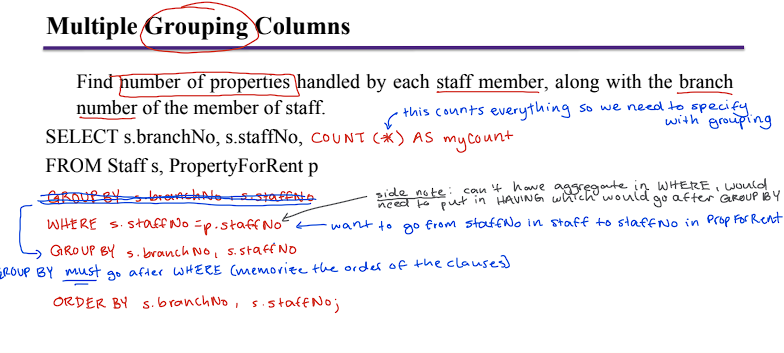 Multiple Grouping Columns
Find number of properties handled by each staff member, along with the branch
number of the member of staff.
this counts everything so we need to specify
with grouping
SELECT s.branchNo, s.staffNo, COUNT (*) AS myCount
FROM Staff s, PropertyForRent p
GROUP BY s.branchNo, s.staffNo
side note: can't have aggregate in WHERE, would
need to put in HAVING which would go after GROUP BY
WHERE s.staffNo = p.staffNo
want to go from staffNo in staff to staffNo in PropForRent
GROUP BY s.branchNo, s.staffNo
GROUP BY must go after WHERE (memorize the order of the clauses)
ORDER BY s.branchNo, s.staffNo;